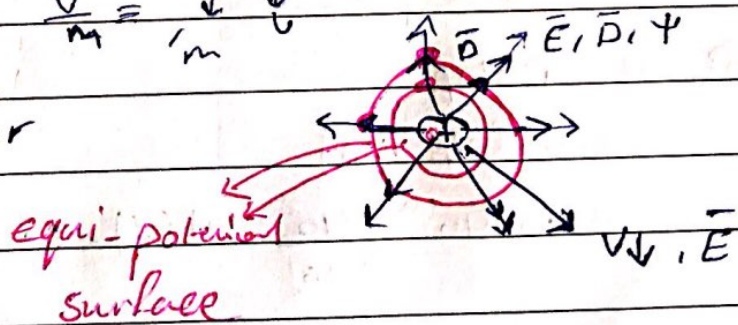 V/m = /m
D̅ E̅, D̅, Ψ
r
+
equi-potenial
V↓, E̅
surface